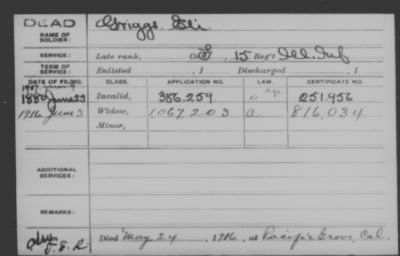 DEAD
NAME OF SOLDIER: Griggs, Eli
SERVICE: Late rank, Co. G, 15 Reg't Ill. Inf
TERM OF SERVICE: Enlisted , 1 Discharged , 1
DATE OF FILING. CLASS. APPLICATION NO. LAW. CERTIFICATE NO.
1907
1880 June 23 Invalid, 386.259. Age 251.456
1916 June 3 Widow, 1067.203 a. 816,034
Minor,
ADDITIONAL SERVICES:
REMARKS:
Died May 24, 1916, at Pacific Grove, Cal.